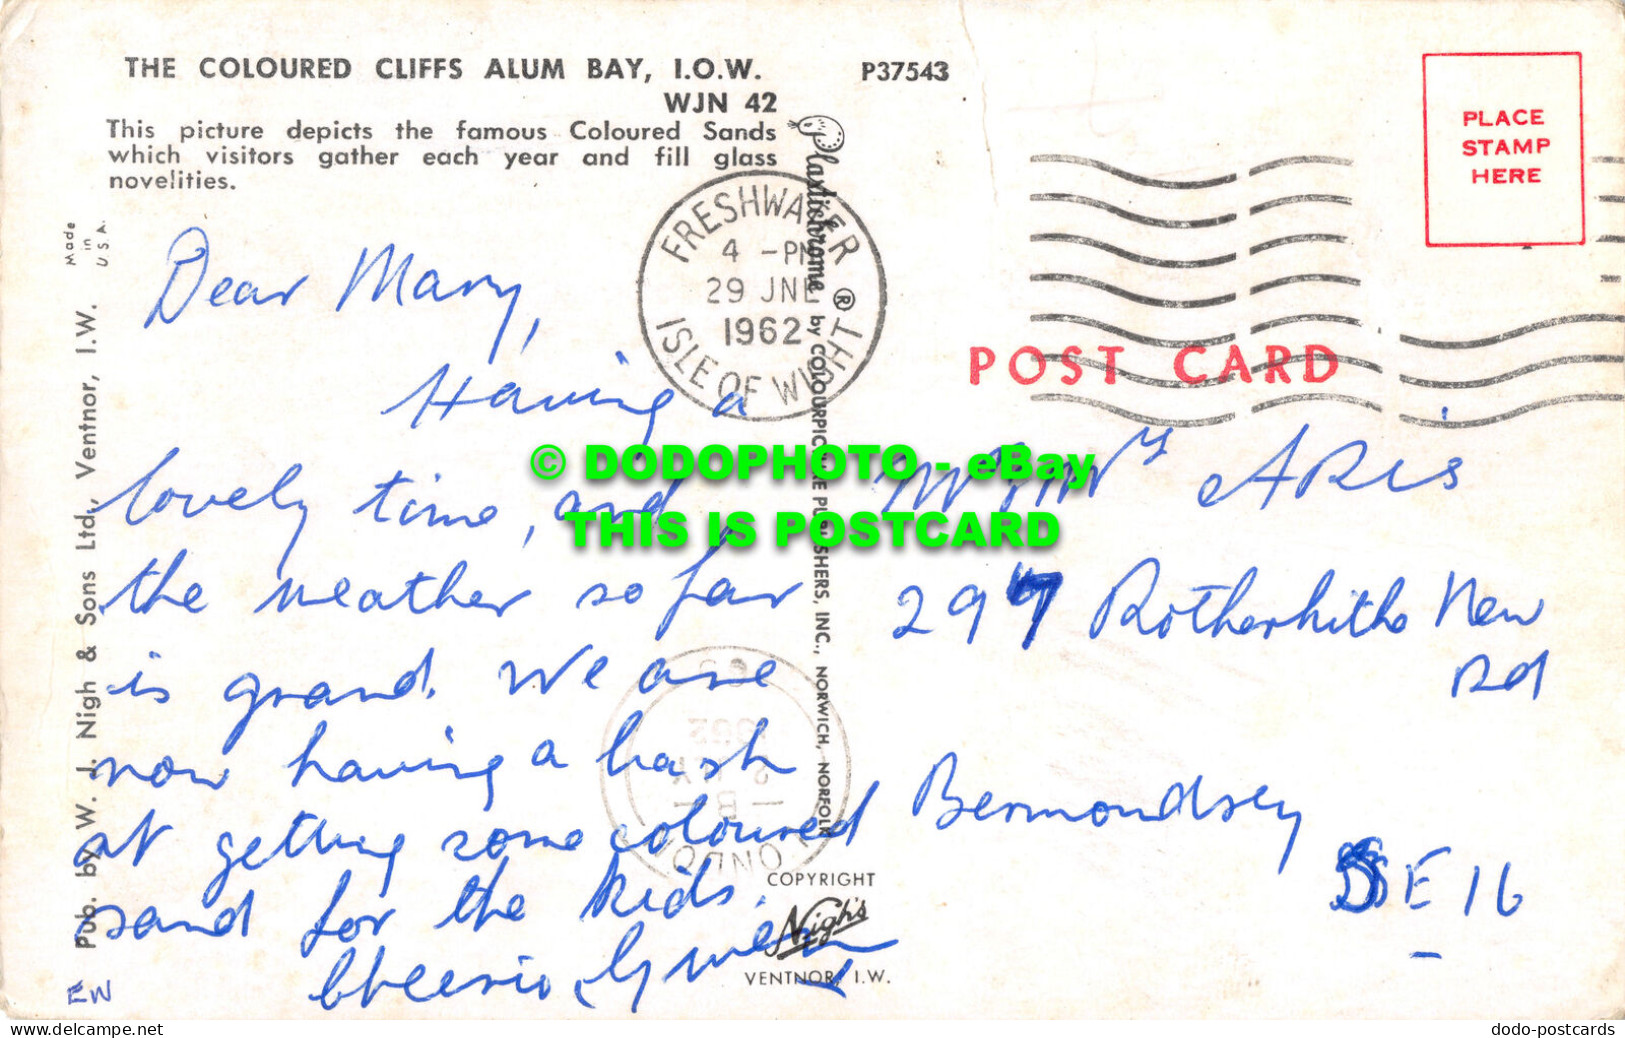 THE COLOURED CLIFFS ALUM BAY, I.O.W.
WJN 42
P37543
This picture depicts the famous Coloured Sands
which visitors gather each year and fill glass
novelities.
Made
in
U.S.A.
Pub. by W. J. Nigh & Sons Ltd., Ventnor, I.W.
FRESHWATER
4 - PM
29 JNE
1962
ISLE OF WIGHT
Plastichrome ® by COLOURPICTURE PUBLISHERS, INC., NORWICH, NORFOLK
PLACE
STAMP
HERE
POST CARD
Dear Mary,
Having a
lovely time, and
the weather so far
is grand. We are
now having a bash
at getting some coloured
sand for the kids.
Cheerio
Mr & Mrs ARIS
297 Rotherhithe New
Rd
Bermondsey
SE 16
LONDON
COPYRIGHT
Nigh's
VENTNOR, I.W.
EW
© DODOPHOTO - eBay
THIS IS POSTCARD
Collect and sell on Delcampe.net
dodo-postcards